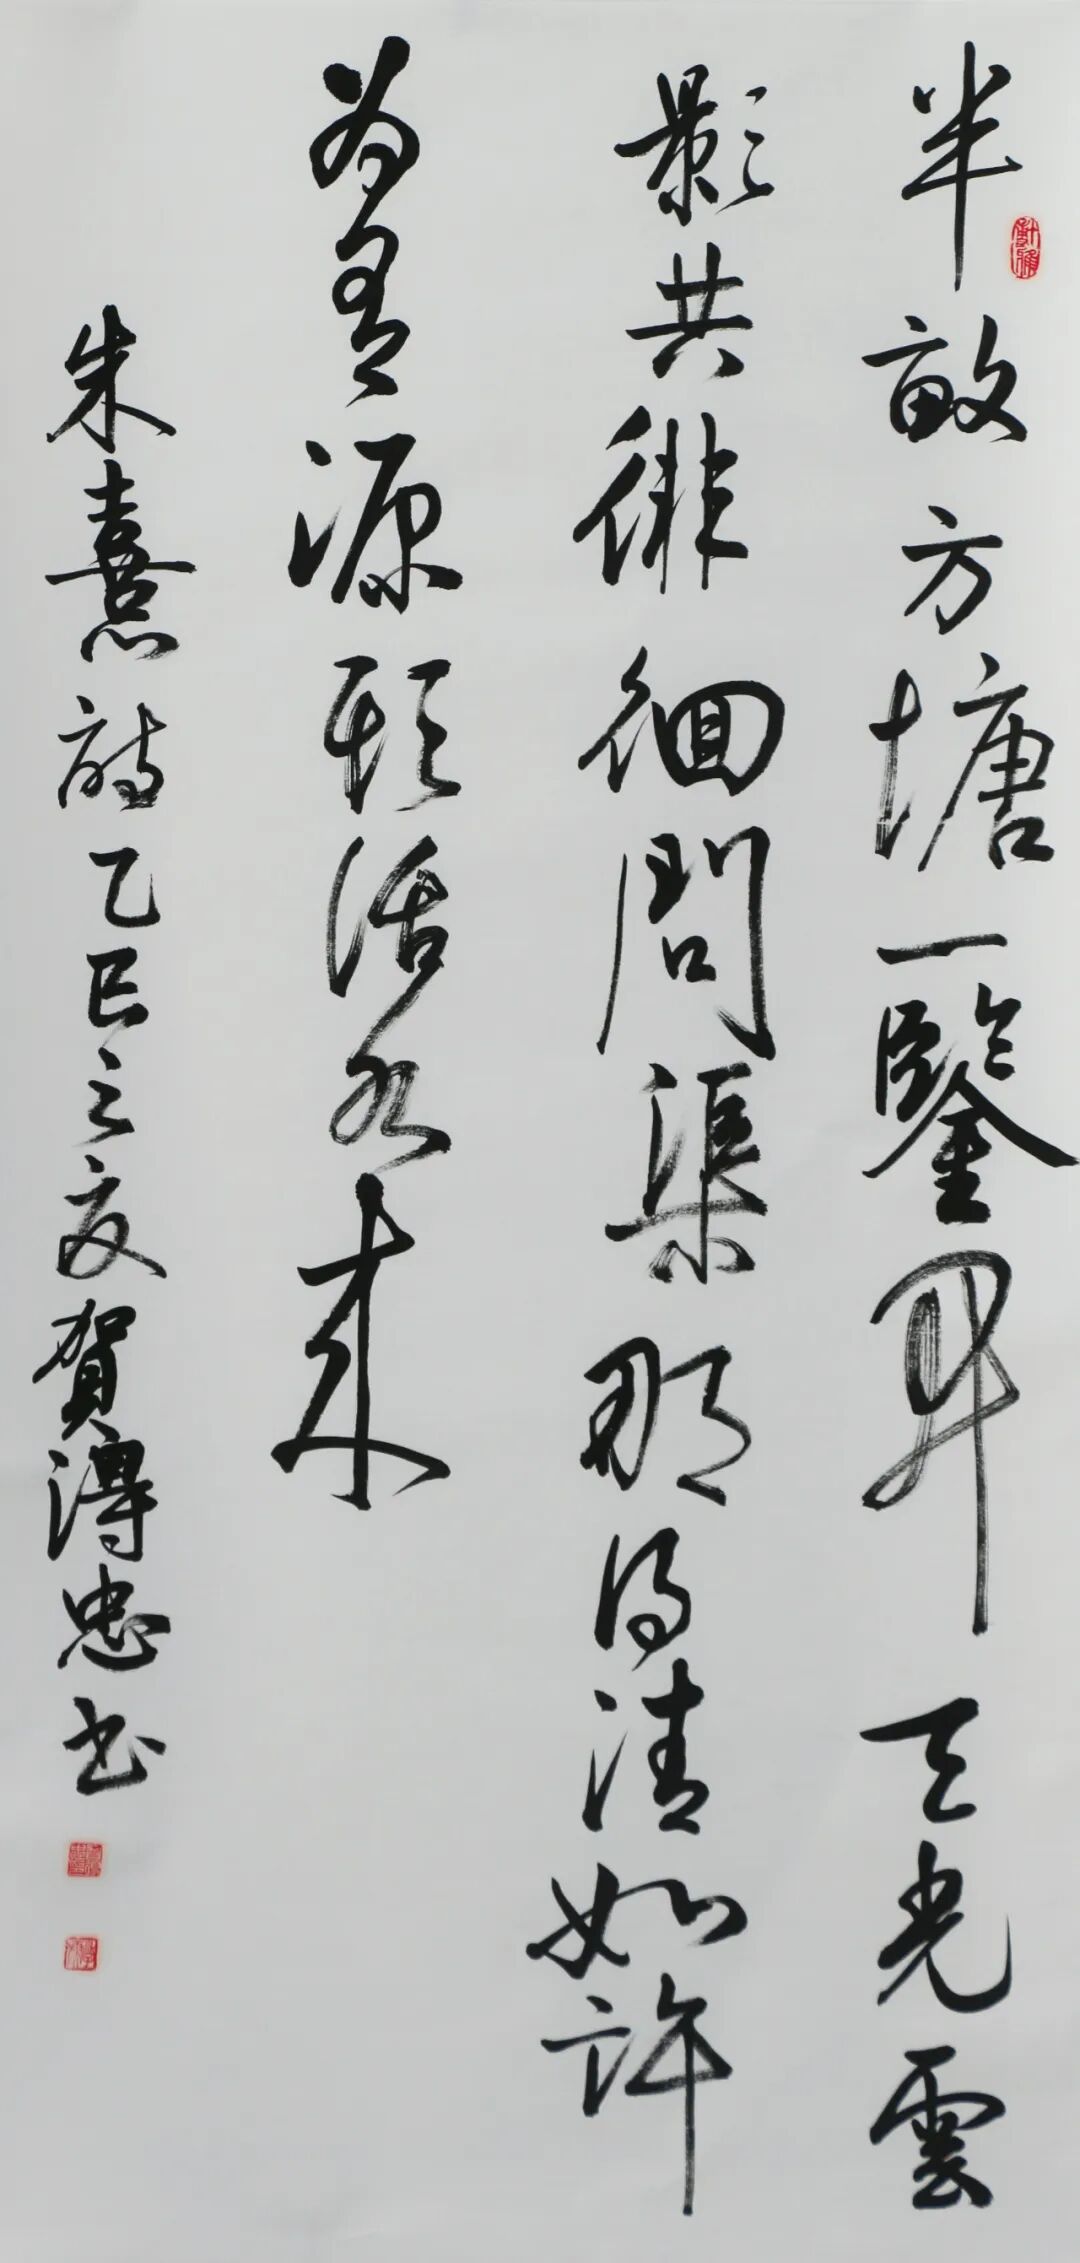 半畝方塘一鑒開天光雲
影共徘徊問渠那得清如許
為有源頭活水来
朱熹詩乙巳之夏賀得忠书